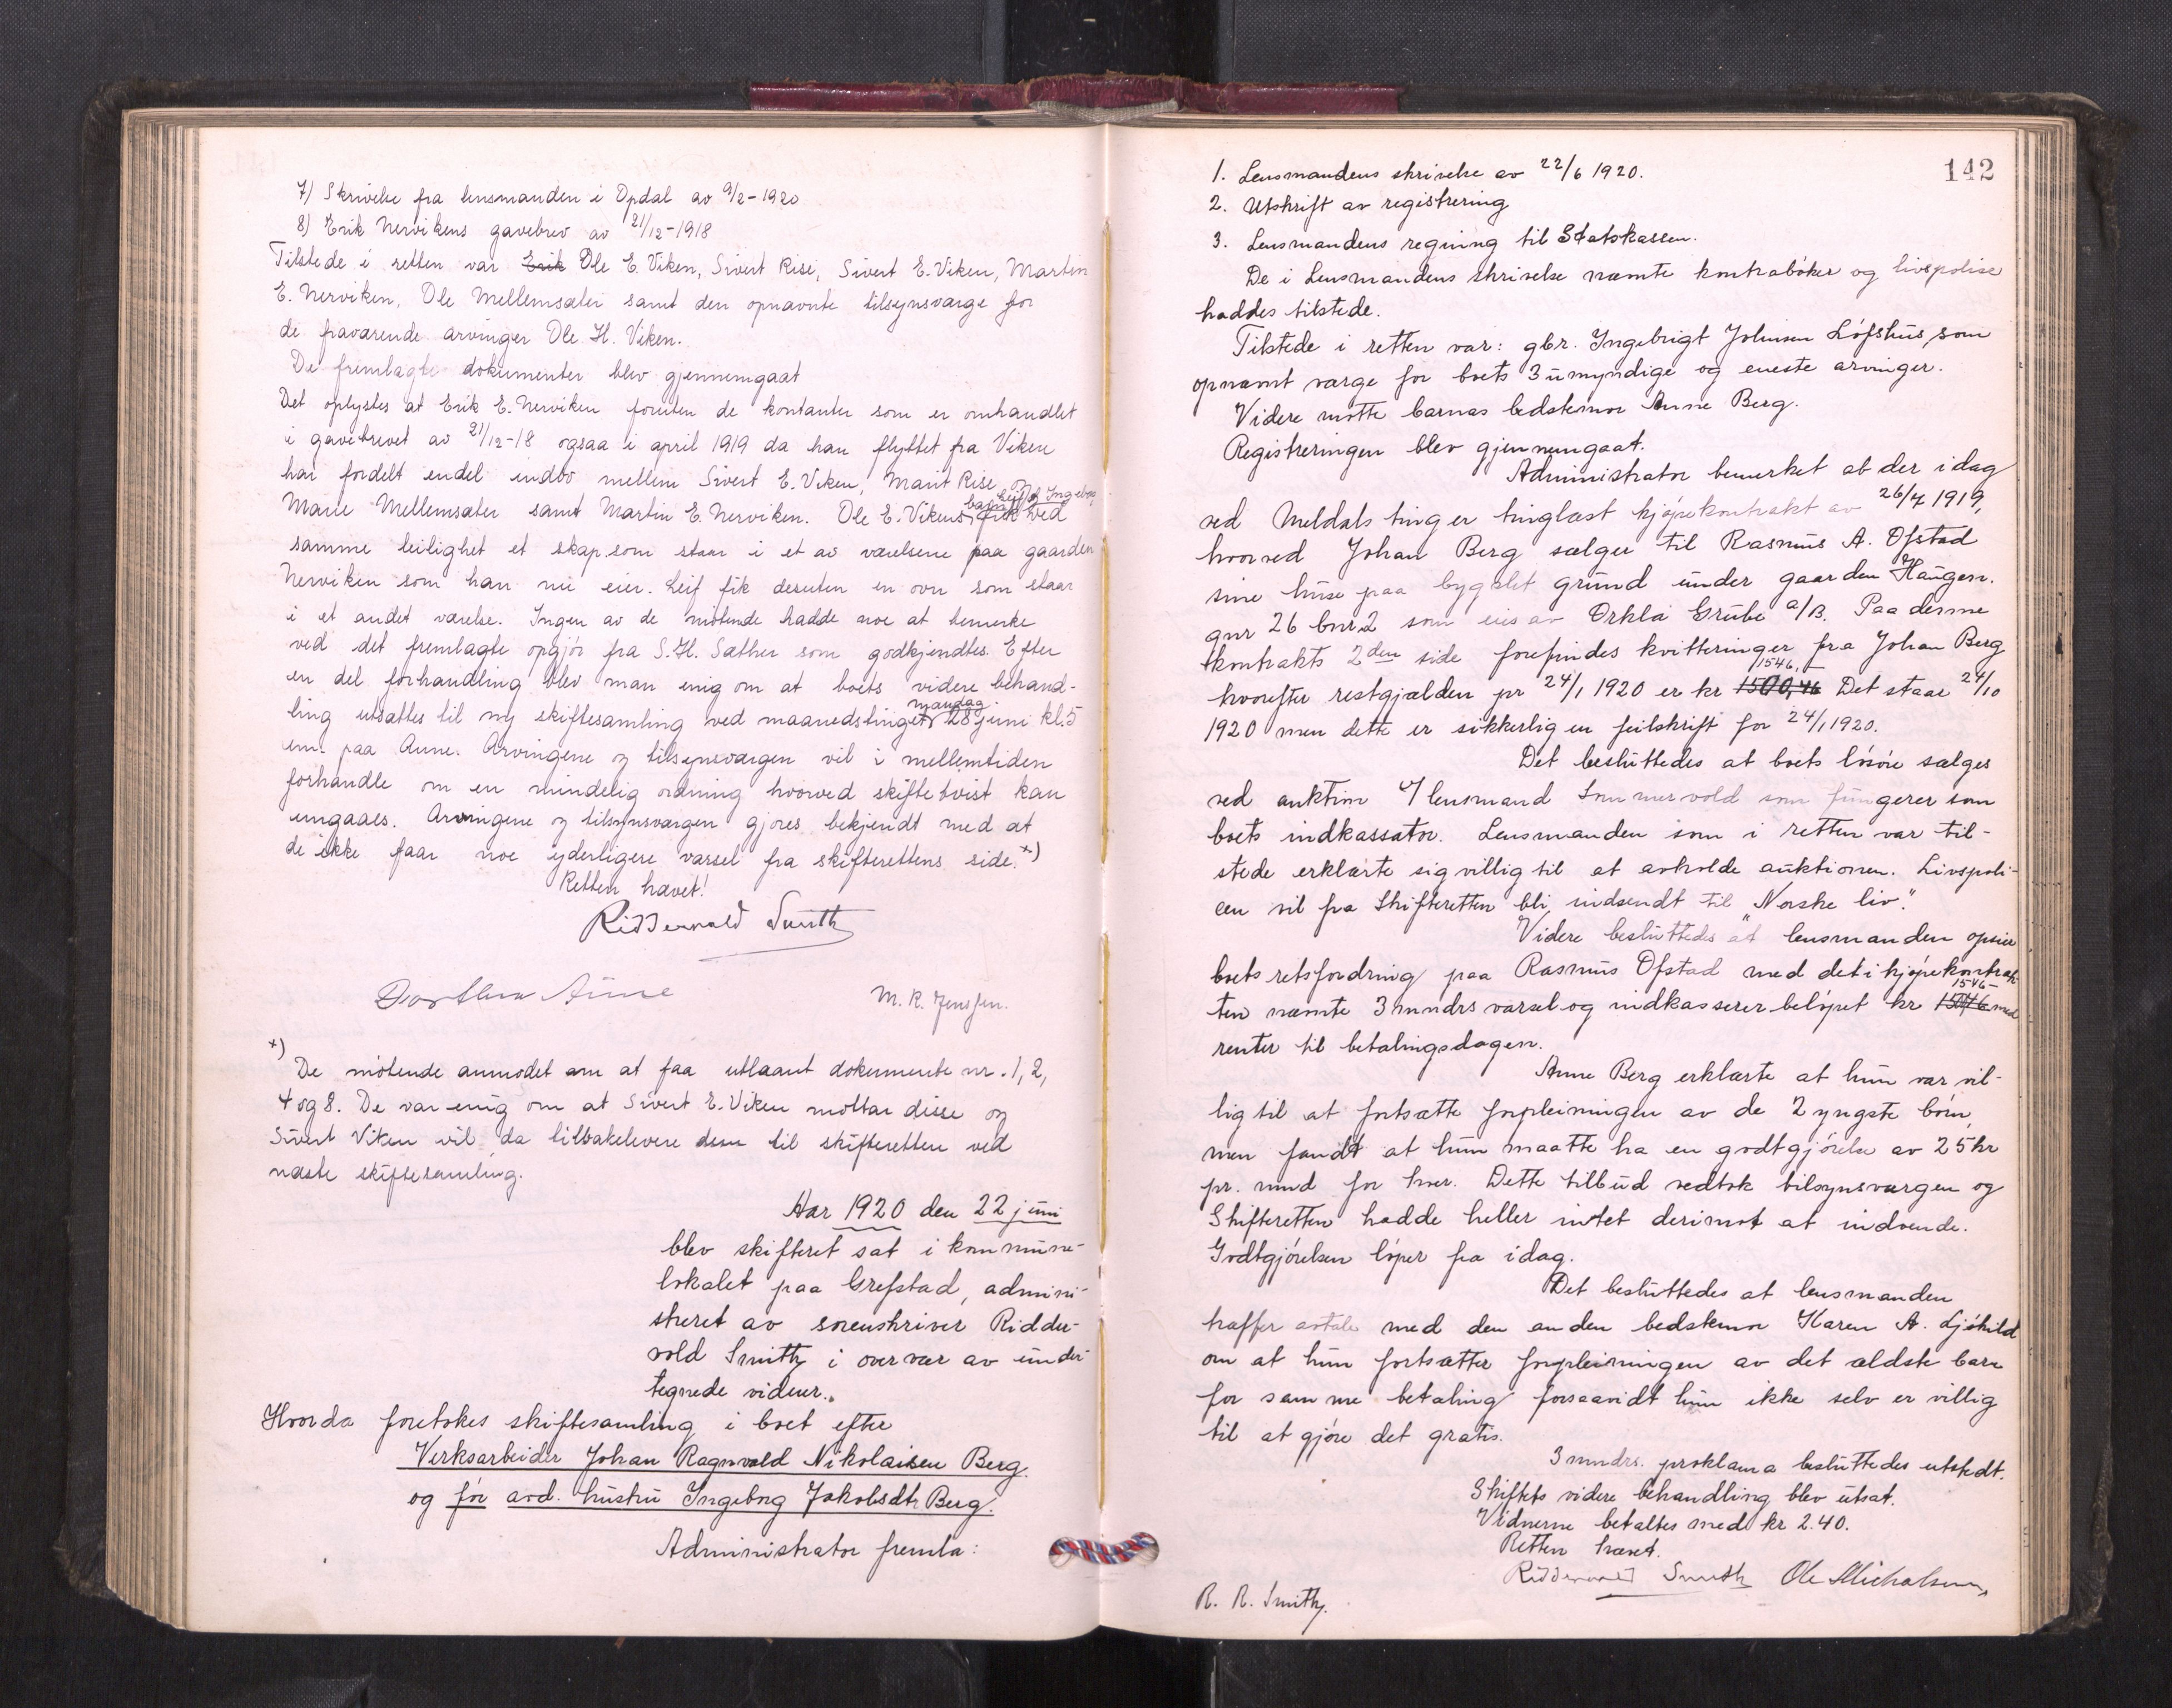 7) Skrivelse fra lensmanden i Opdal av 9/2-1920
8) Erik Nervikens gavebrev av 21/12-1918
Tilstede i retten var Erik Ole E. Viken, Sivert Rise, Sivert E. Viken, Martin
E. Nerviken, Ole Mellemsæter samt den opnævnte tilsynsværge for
de fraværende arvinger Ole H. Viken.
De fremlagte dokumenter blev gjennemgaat
Det oplystes at Erik E. Nerviken foruten de kontanter som er omhandlet
i gavebrevet av 21/12-18 ogsaa i april 1919 da han flyttet fra Viken
har fordelt endel indbo mellem Sivert E. Viken, Marit Rise og
Marie Mellemsæter samt Martin E. Nerviken. Ole E. Vikens barn Leif og Ingeborg fik ved
samme leilighet et skap som staar i et av værelsene paa gaarden
Nerviken som han nu eier. Leif fik desuten en ovn som staar
i et andet værelse. Ingen av de møtende hadde noe at bemerke
ved det fremlagte opgjør fra S. H. Sæther som godkjendtes. Efter
en del forhandling blev man enig om at boets videre behand-
ling utsættes til ny skiftesamling ved maanedstinget mandag 28 juni kl. 5
em. paa Aune. Arvingene og tilsynsværgen vil i mellemtiden
forhandle om en mindelig ordning hvorved skiftetvist kan
undgaaes. Arvingene og tilsynsværgen gjøres bekjendt med at
de ikke faar noe yderligere varsel fra skifterettens side. x)
Retten hævet!
Riddervold Smith
Dorthea Aune
M. R. Jenssen.
x)
De møtende anmodet om at faa utlaant dokumente nr. 1, 2,
4 og 8. De var enig om at Sivert E. Viken mottar disse og
Sivert Viken vil da tilbakelevere dem til skifteretten ved
næste skiftesamling.
Aar 1920 den 22 juni
blev skifteret sat i kommune-
lokalet paa Grefstad, admini-
streret av sorenskriver Ridder-
vold Smith i overvær av under-
tegnede vidner.
Hvorda foretokes skiftesamling i boet efter
Verksarbeider Johan Ragnvald Nikolaisen Berg
og før avd. hustru Ingeborg Jakobsdtr Berg.
Administrator fremla:
142
1. Lensmandens skrivelse av 22/6 1920.
2. Utskrift av registrering
3. Lensmandens regning til Statskassen.
De i Lensmandens skrivelse nævnte kontrabøker og livspolise
haddes tilstede.
Tilstede i retten var: gbr. Ingebrigt Johnsen Løfshus, som
opnævnt værge for boets 3 umyndige og eneste arvinger.
Videre møtte barnas bedstemor Anne Berg.
Registreringen blev gjennemgaat.
Administrator bemerket at der idag
ved Meldals ting er tinglæst kjøpekontrakt av 26/7 1919,
hvorved Johan Berg sælger til Rasmus A. Ofstad
sine huse paa bygslet grund under gaarden Haugen.
gnr 26 bnr 2 som eies av Orkla Grube a/B. Paa denne
kontrakts 2den side forefindes kvitteringer fra Johan Berg
hvorefter restgjælden pr 24/1 1920 er kr 1500,46 1546,- Det staar 24/10
1920 men dette er sikkerlig en feilskrift for 24/1 1920.
Det besluttedes at boets løsøre sælges
ved auktion v/ lensmand Sommervold som fungerer som
boets indkassator. Lensmanden som i retten var til-
stede erklærte sig villig til at avholde auktionen. Livspoli-
cen vil fra Skifteretten bli indsendt til "Norske liv".
Videre besluttedes at lensmanden opsier
boets restfordring paa Rasmus Ofstad med det i kjøpekontrak-
ten nævnte 3 mndrs varsel og indkasserer beløpet kr 1546- med
renter til betalingsdagen.
Anne Berg erklærte at hun var vil-
lig til at fortsætte forpleiningen av de 2 yngste børn,
men fandt at hun maatte ha en godtgjørelse av 25 kr
pr. mnd for hver. Dette tilbud vedtok tilsynsværgen og
Skifteretten hadde heller intet derimot at indvende.
Godtgjørelsen løper fra idag.
Det besluttedes at lensmanden
træffer avtale med den anden bedstemor Karen A. Ljøkild
om at hun fortsætter forpleiningen av det ældste barn
for samme betaling forsaavidt hun ikke selv er villig
til at gjøre det gratis.
3 mndrs. proklama besluttedes utstedt.
Skiftets videre behandling blev utsat.
Vidnerne betaltes med kr 2.40.
Retten hævet.
Riddervold Smith Ole Michalsen
R. R. Smith.